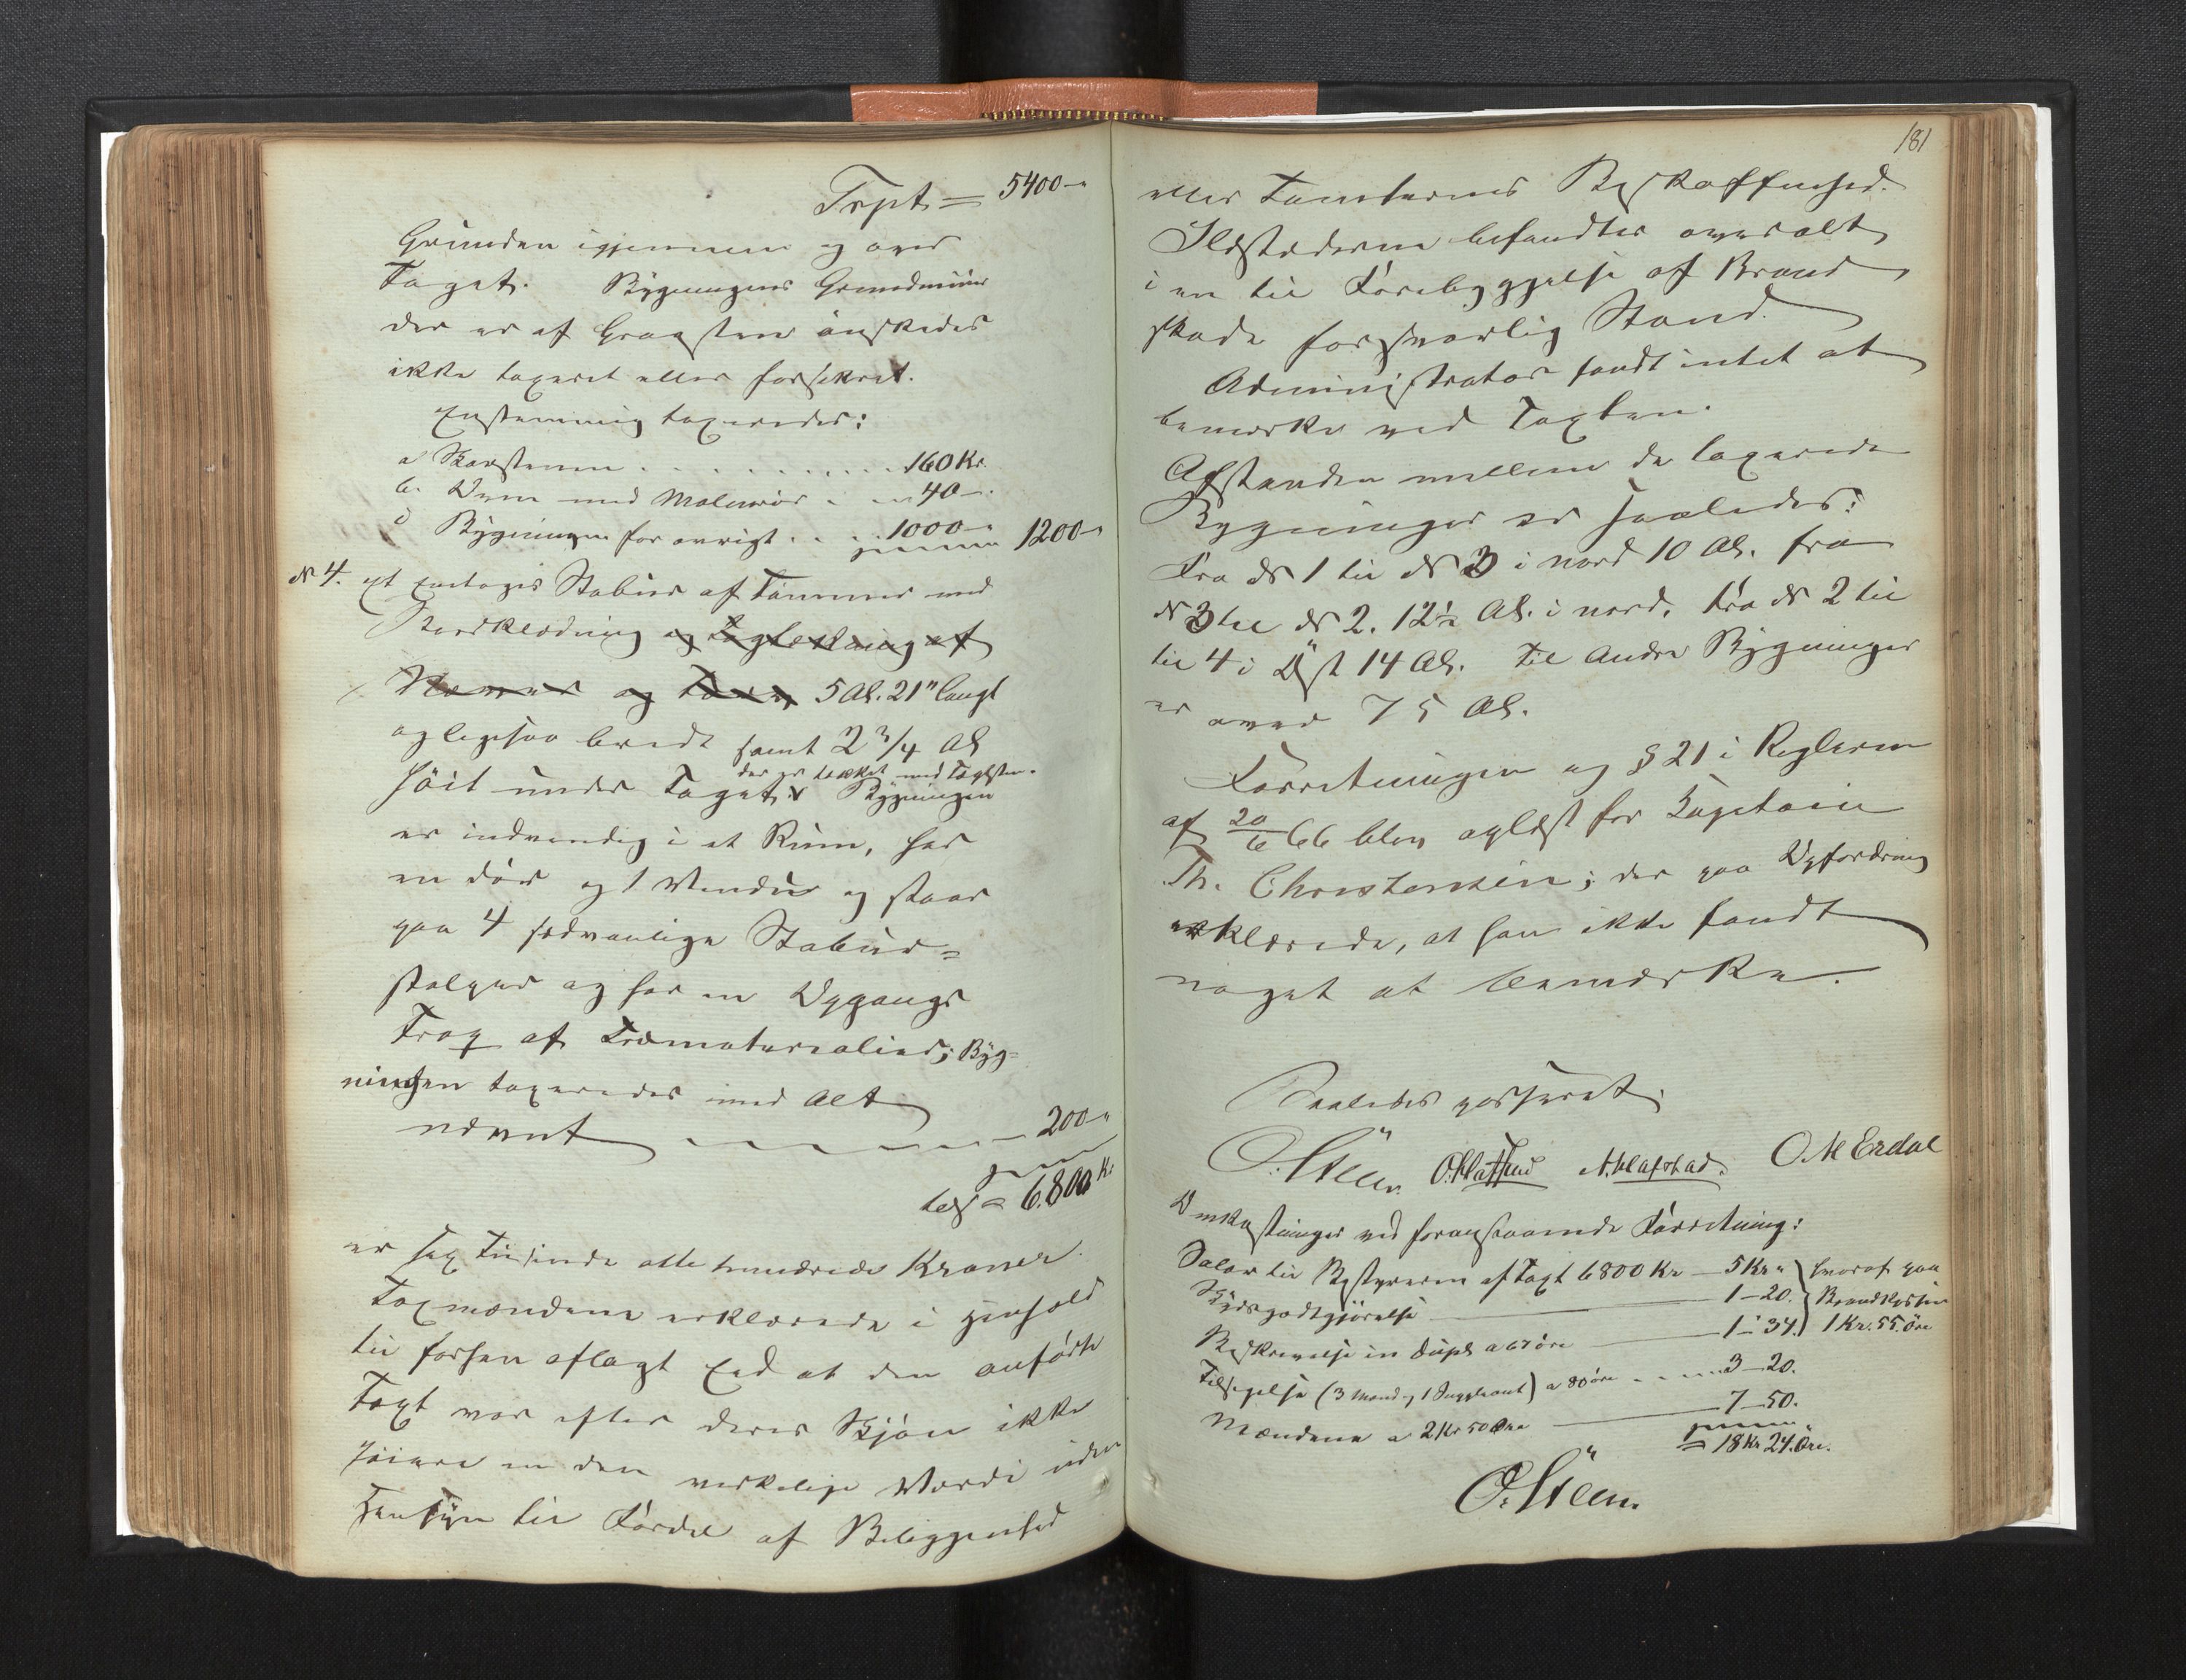 Trpt = 5400 -"
Grunden igjennem og over
Taget. Bygningens Grundmuur
der er af Graasteen ønskedes
ikke taxeret eller forsikret.
Enstemmig taxeredes:
a Skorstenen . . . . . . . . . 160 Kr.
b. Ovne med Malmrør . . . 40 -.
c Bygningen for øvrigt . . . 1000 -" 1200 -"
№ 4. et Stabur af Tømmer med
Bordklædning og Tagtækning af
Næver og Torv 5 Al. 21" langt
og ligesaa bredt samt 2 3/4 Al
høit under Taget. Bygningen
der er tækket med Taglsten.
er indvendig i et Rum, har
en dør og 1 Vindue og staar
paa 4 sædvanlige Stabur=
stolper og har en Opgangs
Trap af Træmaterialier; Byg=
ningen taxeredes med Alt
nævnt - - - - - 200 -"
tils = 6.800 Kr
er sex Tusinde otte hundrede Kroner.
Taxmændene erklærede i Henhold
til forhen aflagt Eed at den anførte
Taxt var efter deres Skjøn ikke
høiere en den virkelige Værdi uden
Hensyn til Fordel af Beliggenhed
181
eller Tomternes Beskaffenhed.
Ildstederne befandtes overalt
i en til Forebyggelse af Brand
skade forsvarlig Stand.
Administrator fandt intet at
bemærke ved Taxten.
Afstanden mellem de taxerede
Bygninger er saaledes:
Fra № 1 til № 3 i nord 10 Al. fra
№ 3 til № 2. 12½ Al. i nord, fra № 2 til
til 4 i Øst 14 Al. Til Andre Bygninger
er over 75 Al.
Forretningen og § 21 i Reglerne
af 20/6 66 blev oplæst for Kaptain
Th. Christensen; der paa Opfordring
erklærede, at han ikke fandt
noget at bemærke.
Saaledes passeret.
O. Steen. A. Klafstad. O. M Erdal
Omkostninger ved foranstaaende Forretning:
Salær til Bestyreren af Taxt 6800 Kr — 5 Kr " } hvoraf paa
Skydsgodtgjørelse — 1 - 20. } Brandkassen
Beskrivelse in dupl a 67 øre — 1 - 34. } 1 Kr. 55. Øre
Tilsigelse (3 Mænd og 1 Suppleant) a 80 øre . . . 3 - 20.
Mændene a 2 Kr 50 Øre — 7 - 50.
= 18 Kr 24. Øre.
O. Steen.